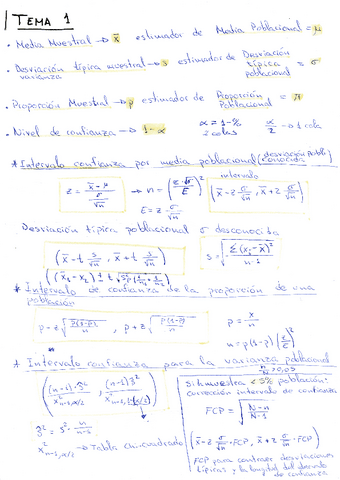 TEMA 1
• Media Muestral → x̄ estimador de Media Poblacional = μ
• Desviación típica muestral → s estimador de Desviación típica poblacional = σ
varianza
• Proporción Muestral → p estimador de Proporción Poblacional = π
• Nivel de confianza → 1-α α = 1-% 2 colas α/2 → 1 cola
* Intervalo confianza por media poblacional (desviación pobl. conocida)
intervalo
z = (x̄-μ)/(σ/√n) → n = (z·σ/E)² (x̄ - z σ/√n , x̄ + z σ/√n)
E = z · σ/√n
Desviación típica poblacional σ desconocida
(x̄ - t s/√n , x̄ + t s/√n) s = √(Σ(xᵢ-x̄)²/(n-1))
* Intervalo de confianza de la proporción de una
población
p - z√(p(1-p)/n) , p + z√(p(1-p)/n) p = x/n
n = p(1-p)(z/E)²
* Intervalo confianza para la varianza poblacional
((n-1)·ŝ²/x²n-1,α/2 , (n-1)ŝ²/x²n-1,1-α/2)
ŝ² = s² · n/(n-1)
x²n-1,α/2 → Tabla chi-cuadrado
n/N > 0,05
Si muestra < 5% población:
corrección intervalo de confianza
FCP = √((N-n)/(N-1))
(x̄ - z σ/√n · FCP, x̄ + z σ/√n · FCP)
FCP para contraer desviaciones
típicas y la longitud del
de confianza